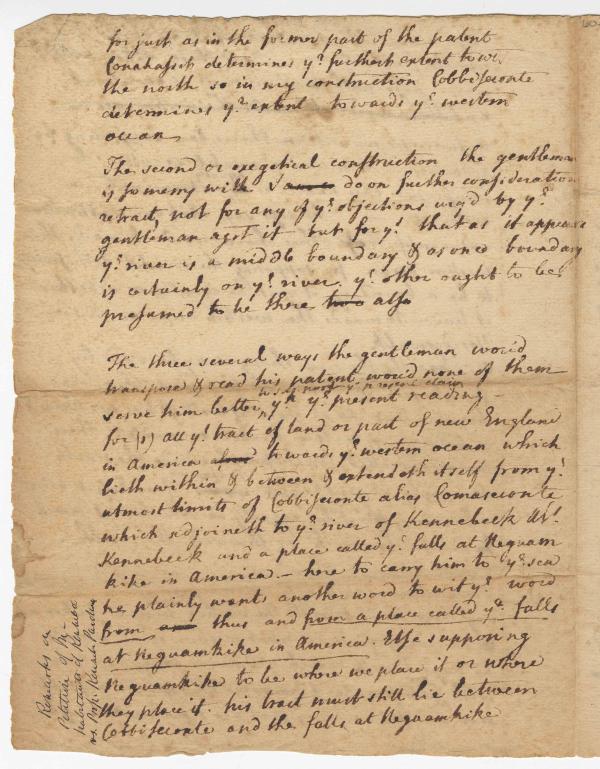 for just as in the former part of the patent
Conahassit determines yᵉ furthest extent tow
the north so in my construction Cobbiseconte
determines yᵉ extent towards yᵉ western
ocean
The second or exegetical construction the gentleman
is so merry with I do on further consideration
retract, not for any of yᵉ objections urg'd by yᵉ
gentleman agst it but for yᵗ that as it appears
yᵉ river is a middle boundary & as one boundary
is certainly on yᵉ river yᵉ other ought to be
presumed to be there also
The three several ways the gentleman would
transpose & read his patent would none of them
to support yᵉ present claim
serve him better yⁿ yᵉ present reading -
for (1) all yᵗ tract of land or part of new England
in America towards yᵉ western ocean which
lieth within & between & extendeth itself from yᵉ
utmost limits of Cobbiseconte alias Comaseconte
which adjoineth to yᵉ river of Kennebeck als
Kennebeck and a place called yᵉ falls at Neguam
kike in America - here to carry him to yᵉ sea
he plainly wants another word to wit yᵉ word
from thus and from a place called yᵉ falls
at Neguamkike in America. Else supposing
Neguamkike to be where we place it or where
they place it. his tract must still lie between
Cobbiseconte and the falls at Neguamkike
Remarks on
Petition of In-
habitants of
vs. Prop. Kenneb. Purchase